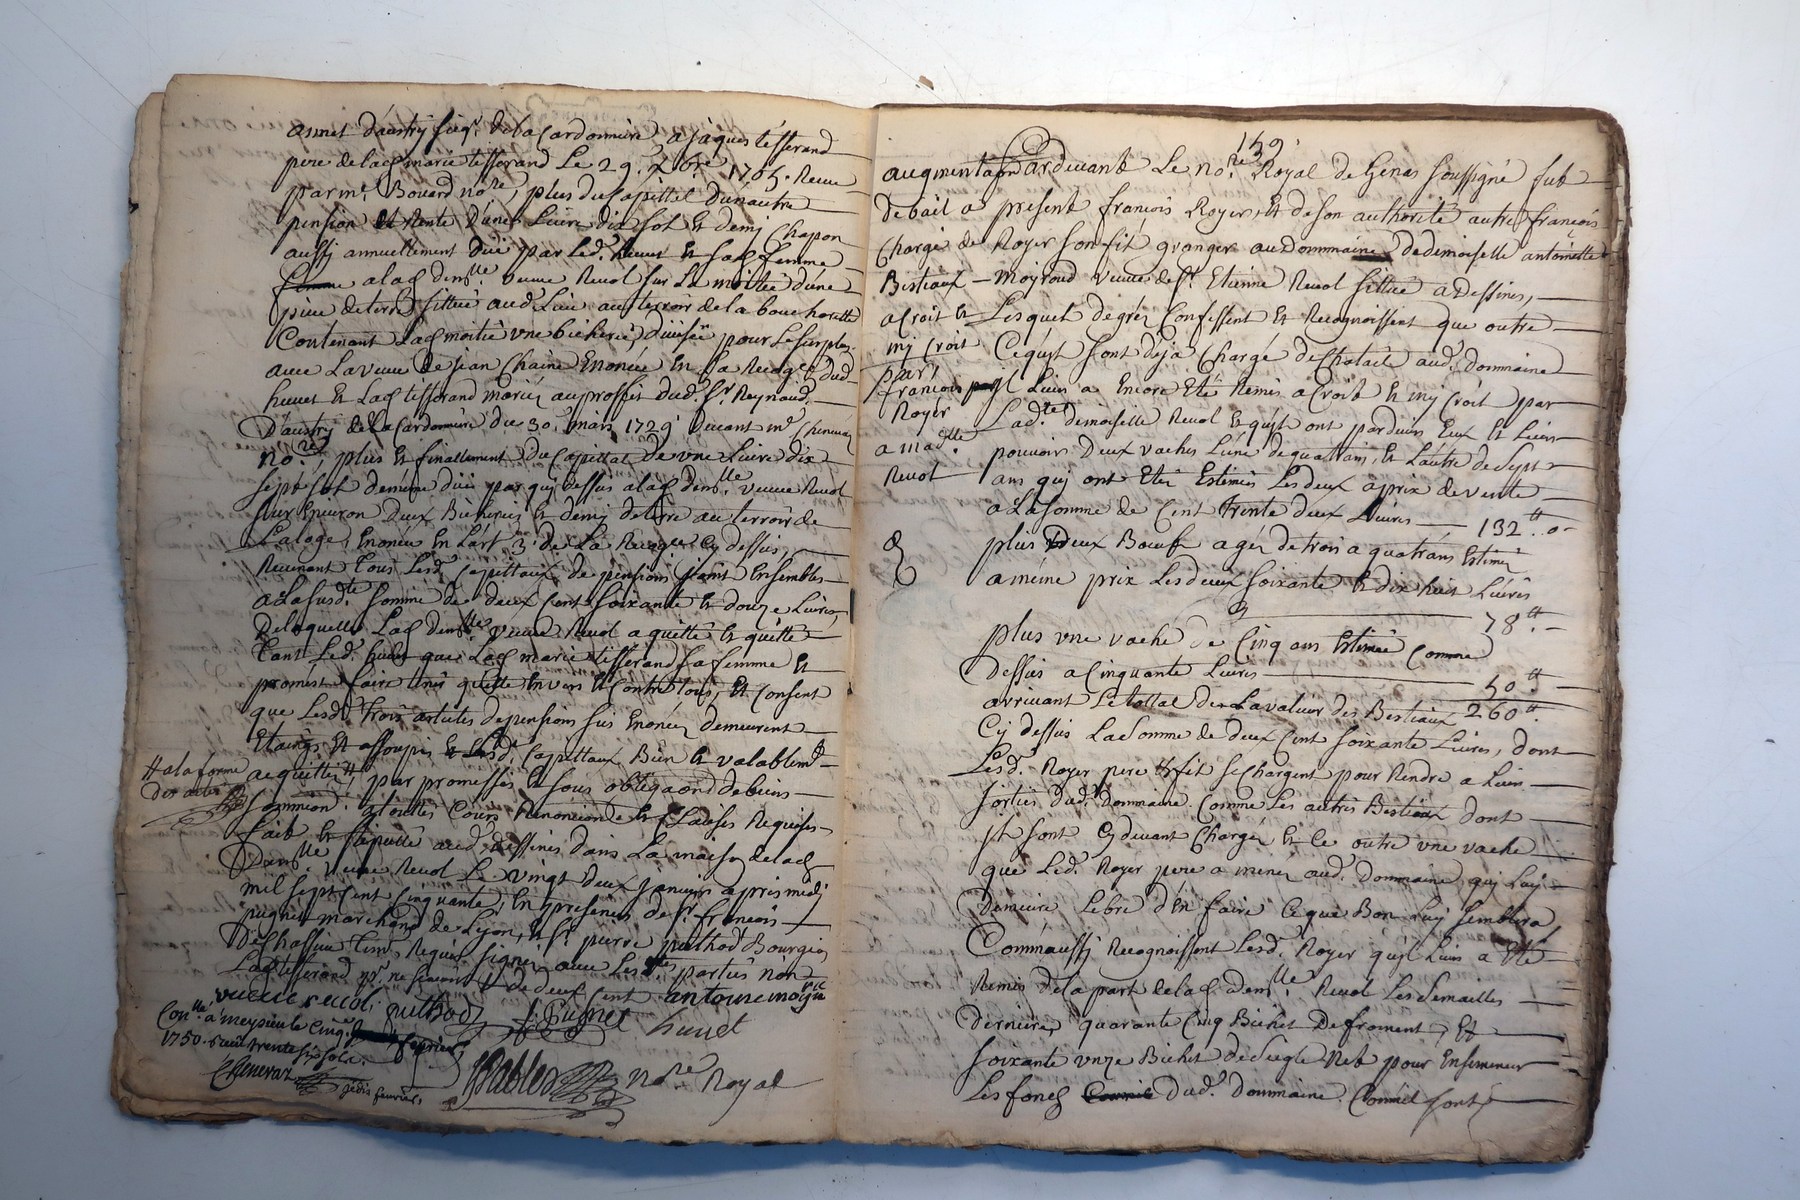 asmet daustry sieg.r de la Cardonniere a Jaques tisserand
pere de lad marie tisserand Le 29. Xbre 1705. Receu
par m.e Bouard no.re, plus du Capittel d'une autre
pension et Rente d'une Livre dix sol et demy Chappon
aussy annuellement düe par Led. huvet et sa femme
a lad dem.lle veuve Revol sur La moitiée d'une
piece de terre sittüe aud. Lieu au terroir de la bouchorette
Contenant Lad moitié une bicherée, divisée pour Le surplus
avec La veuve de Jean Chaine Enoncée En La Recog.ce dud
huvet et Lad tisserand mariés au proffit dud. S.r Reynaud
D'austry de la Cardonniere du 30. mars 1729 devant m.e Cheneraz
no.re, plus et finallement du Capittal de une Livre dix
sept sol demeure düe par qui dessus a lad dem.lle veuve Revol
sur Environ deux Bicherées et demy de terre au terroir de
La loge, Enoncée En L'art 3. de La Recog.ce Cy dessus,
Revenant tous Lesd. Capittaux de pensions joint Ensembles
a La susd.te somme de deux Cent soixante et douze Livres,
De laquelle Lad dem.lle veuve Revol a quitté et quitte
tant Led. huvet que Lad marie tisserand sa femme et
promest faire tenir quitte Envers et Contre tous, et Consent
que Lesd. trois articles de pensions sus Enoncés demeurent
Etaints et assoupis et Lesd. Capittaux Bien et valablem.t
# a la forme
des actes
acquittés # par promesses et sous obliga.ond de biens
soummion. et touttes Cours Renoncions et Clauses Requises
fait et stipullé aud. dessines dans La maison de lad
Dam.lle veuve Revol Le vingt deux Janvier apres midy
mil sept Cent Cinquante, En presence de S.r francois
pugnet marchand de Lyon, et S.r pierre puthod Bourgeois
De Chassieu tem. Requis signés avec Lesd. parties non
Lad tisserand p.r ne scavoir de deux Cent antoine moyrou
veuve revol. puthod J. Pugnet huvet
Con.llé a meysieu le Cinq fevrier
1750. Receu trente six sols.
Cheneraz
J Sablon no.re Royal
je dis fevrier.
159
augmenta.on
de
Chargé de
Bestiaux
a Croit et
my Croit
par
francois
Royer
a mad.lle
Revol
Pardevant Le no.re Royal de Genas soussigné fut
De bail a present francois Royer, et de son authorité autre francois
Royer son fil granger au Dommaine de demoiselle antoinette
Moyroud veuve de S.r Etienne Revol sittüé a Dessines,
Lesquel de gréz Confessent et Recognoissent que outre
Ce qu'jl sont déja Chargé de Chatail aud. Dommaine
jl Leurs a Encore Eté Remis a Croit et my Croit par
Lad.te demoiselle Revol et qu'jl ont pardevers Eux et Leurs
pouvoirs Deux vaches L'une de quatrans, et L'autre de sept
ans quj ont Etéz Estimées Les deux a prix de vente
a La somme de Cent trente deux Livres — 132 tt.. o
plus deux Bœufs agéz de trois a quatrans Estimés
a même prix Les deux soixante et dix huit Livres
78 tt.
plus une vache de Cinq ans Estimée Comme
dessus a Cinquante Livres — 50 tt.
arrivant Le tottal de La valleur des Bestiaux 260 tt.
Cy dessus La somme de deux Cent soixante Livres, dont
Lesd. Royer pere et fil se Chargent pour Rendre a Leur
sorties dud. Dommaine. Comme Les autres Bestiaux dont
jl sont Cy devant Chargés et Ce outre une vache
que Led. Royer pere a menéz aud. Dommaine, quj Luy
Demeure Lebre d'En faire Ce que Bon Luy semblera,
Comm'aussy Recognoissent Lesd. Royer qu'jl Leurs a Eté
Remis de la part de lad dem.lle Revol Les semailles
dernieres quarante Cinq Bichet De froment, Et
soixante unze Bichet de seigle Net pour Ensemencer
Les fond dud. Dommaine